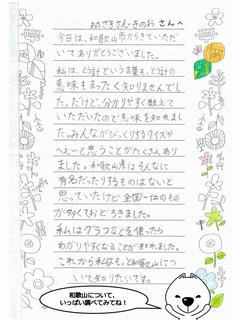 おざきさん・きのおさんへ
今日は、和歌山市からきていただ
いてありがとうございました。
私は、とう計という言葉も、とう計の
意味もまったく知りませんでし
た。だけど、分かりやすく教えて
いただいたので意味を知れまし
た。みんながびっくりするクイズや
へぇーと思うことがたくさんあり
ました。和歌山県はそんなに
有名だったりするものはないと
思っていたけど全国一位のもの
が多くておどろきました。
私はグラフなどを使ったら
わかりやすくなることが知れました。
これから私はもっと和歌山につ
いて知りたいです。
和歌山について、
いっぱい調べてみてね！